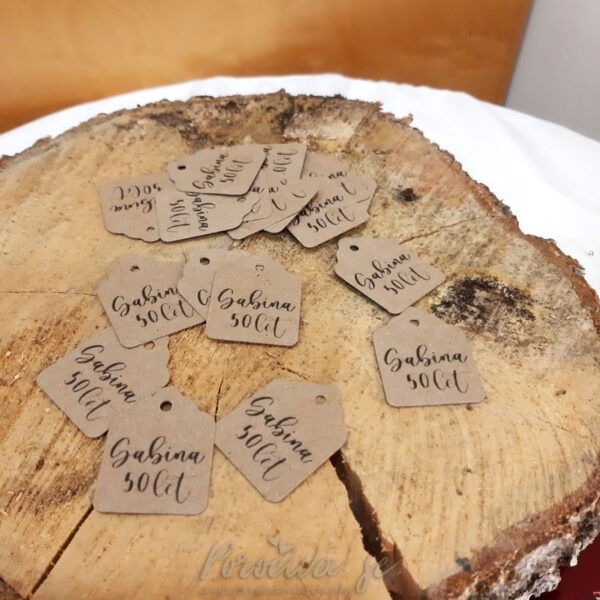 Gabina
50 let
Gabina
50 let
Gabina
50 let
Gabina
50 let
Gabina
50 let
Gabina
50 let
Gabina
50 let
Gabina
50 let
Gabina
50 let
Gabina
50 let
Poročna je